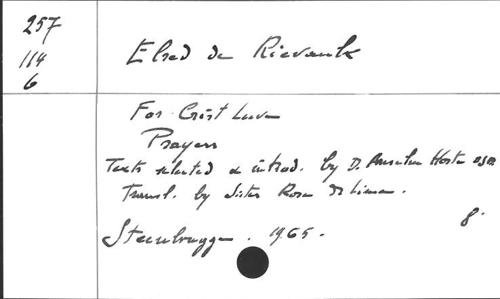 257
114
6
Elred de Rievaulx
For Crist Luve
Prayers
Texts selected & introd. by D. Anselm Hoste OSB
Transl. by Sister Rose de Lima.
8º
Steenbrugge. 1965.